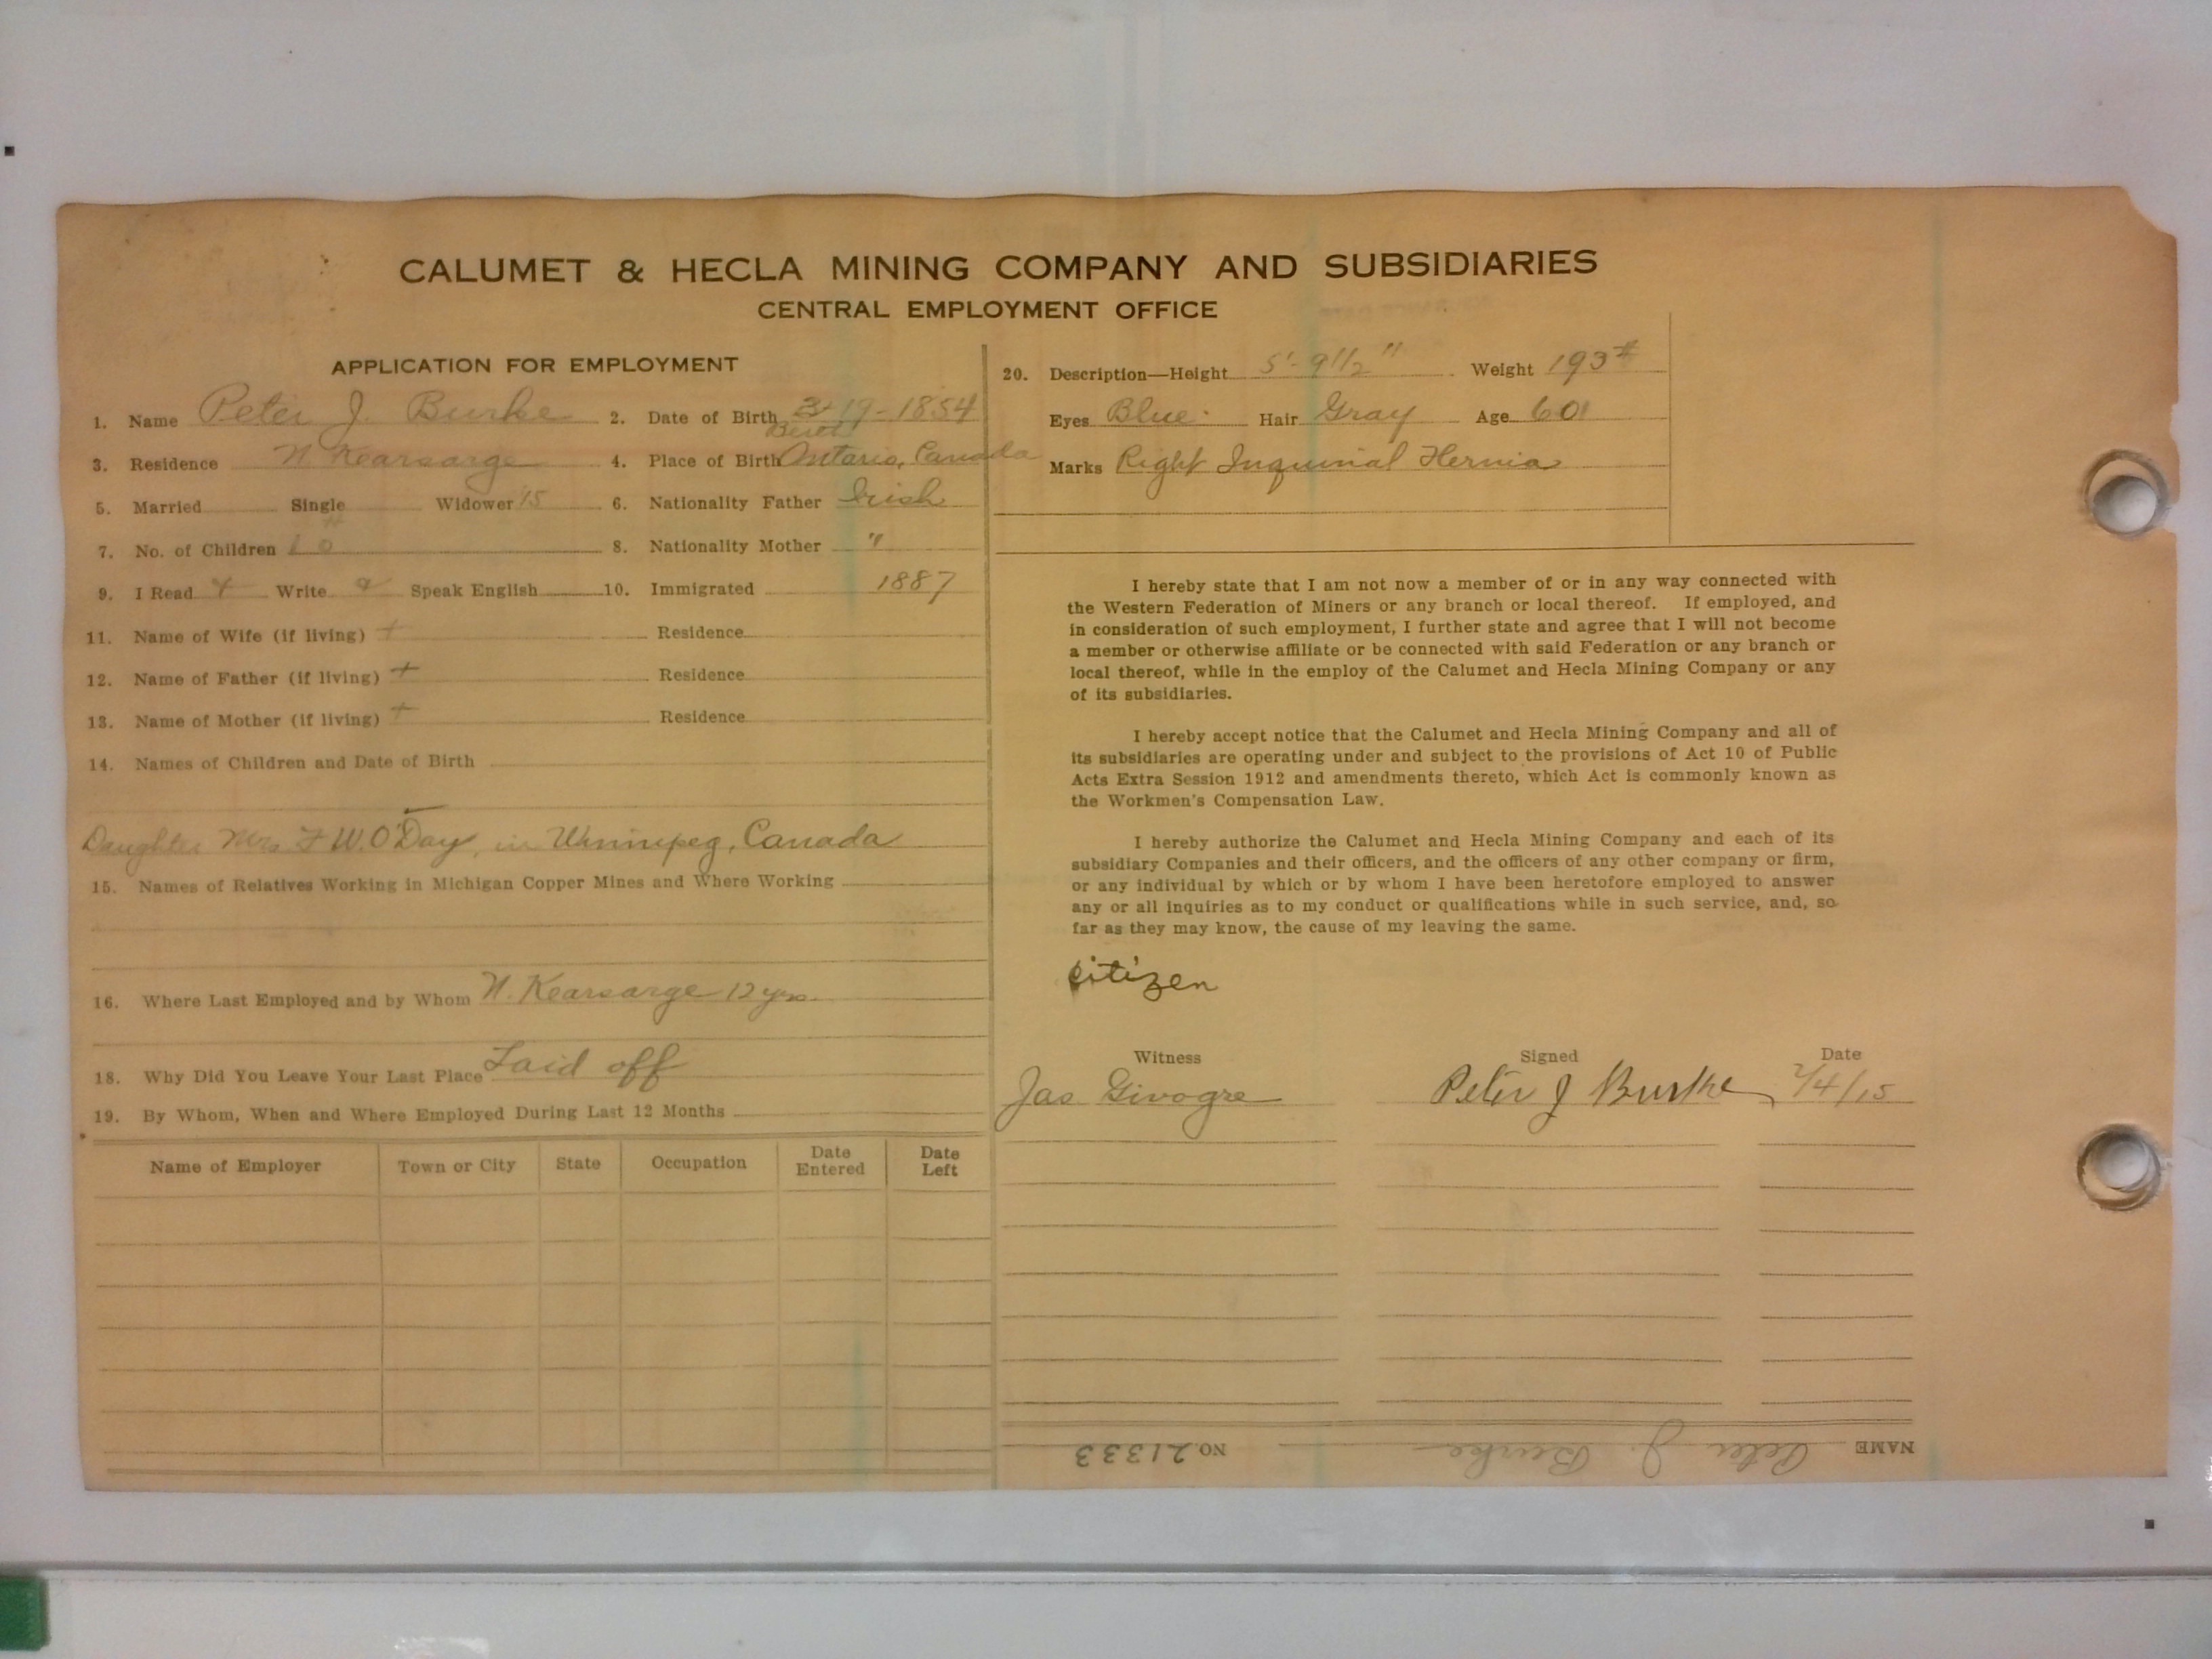 CALUMET & HECLA MINING COMPANY AND SUBSIDIARIES
CENTRAL EMPLOYMENT OFFICE
APPLICATION FOR EMPLOYMENT
1. Name Peter J. Burke 2. Date of Birth 3-19-1854
3. Residence N. Kearsarge 4. Place of Birth Ontario, Canada
5. Married Single Widower 15 6. Nationality Father Irish
7. No. of Children 10 8. Nationality Mother "
9. I Read Write Speak English 10. Immigrated 1887
11. Name of Wife (if living) + Residence
12. Name of Father (if living) + Residence
13. Name of Mother (if living) + Residence
14. Names of Children and Date of Birth
Daughter Mrs F W. O'Day, in Winnipeg, Canada
15. Names of Relatives Working in Michigan Copper Mines and Where Working
16. Where Last Employed and by Whom N. Kearsarge 12 yrs.
18. Why Did You Leave Your Last Place Laid off
19. By Whom, When and Where Employed During Last 12 Months
Name of Employer Town or City State Occupation Date Entered Date Left
20. Description—Height 5'-9 1/2" Weight 193#
Eyes Blue Hair Gray Age 60
Marks Right Inquinal Hernia
I hereby state that I am not now a member of or in any way connected with
the Western Federation of Miners or any branch or local thereof. If employed, and
in consideration of such employment, I further state and agree that I will not become
a member or otherwise affiliate or be connected with said Federation or any branch or
local thereof, while in the employ of the Calumet and Hecla Mining Company or any
of its subsidiaries.
I hereby accept notice that the Calumet and Hecla Mining Company and all of
its subsidiaries are operating under and subject to the provisions of Act 10 of Public
Acts Extra Session 1912 and amendments thereto, which Act is commonly known as
the Workmen's Compensation Law.
I hereby authorize the Calumet and Hecla Mining Company and each of its
subsidiary Companies and their officers, and the officers of any other company or firm,
or any individual by which or by whom I have been heretofore employed to answer
any or all inquiries as to my conduct or qualifications while in such service, and, so
far as they may know, the cause of my leaving the same.
Citizen
Witness Signed Date
Jas Givogre Peter J Burke 2/4/15
NAME Peter J. Burke NO 21333